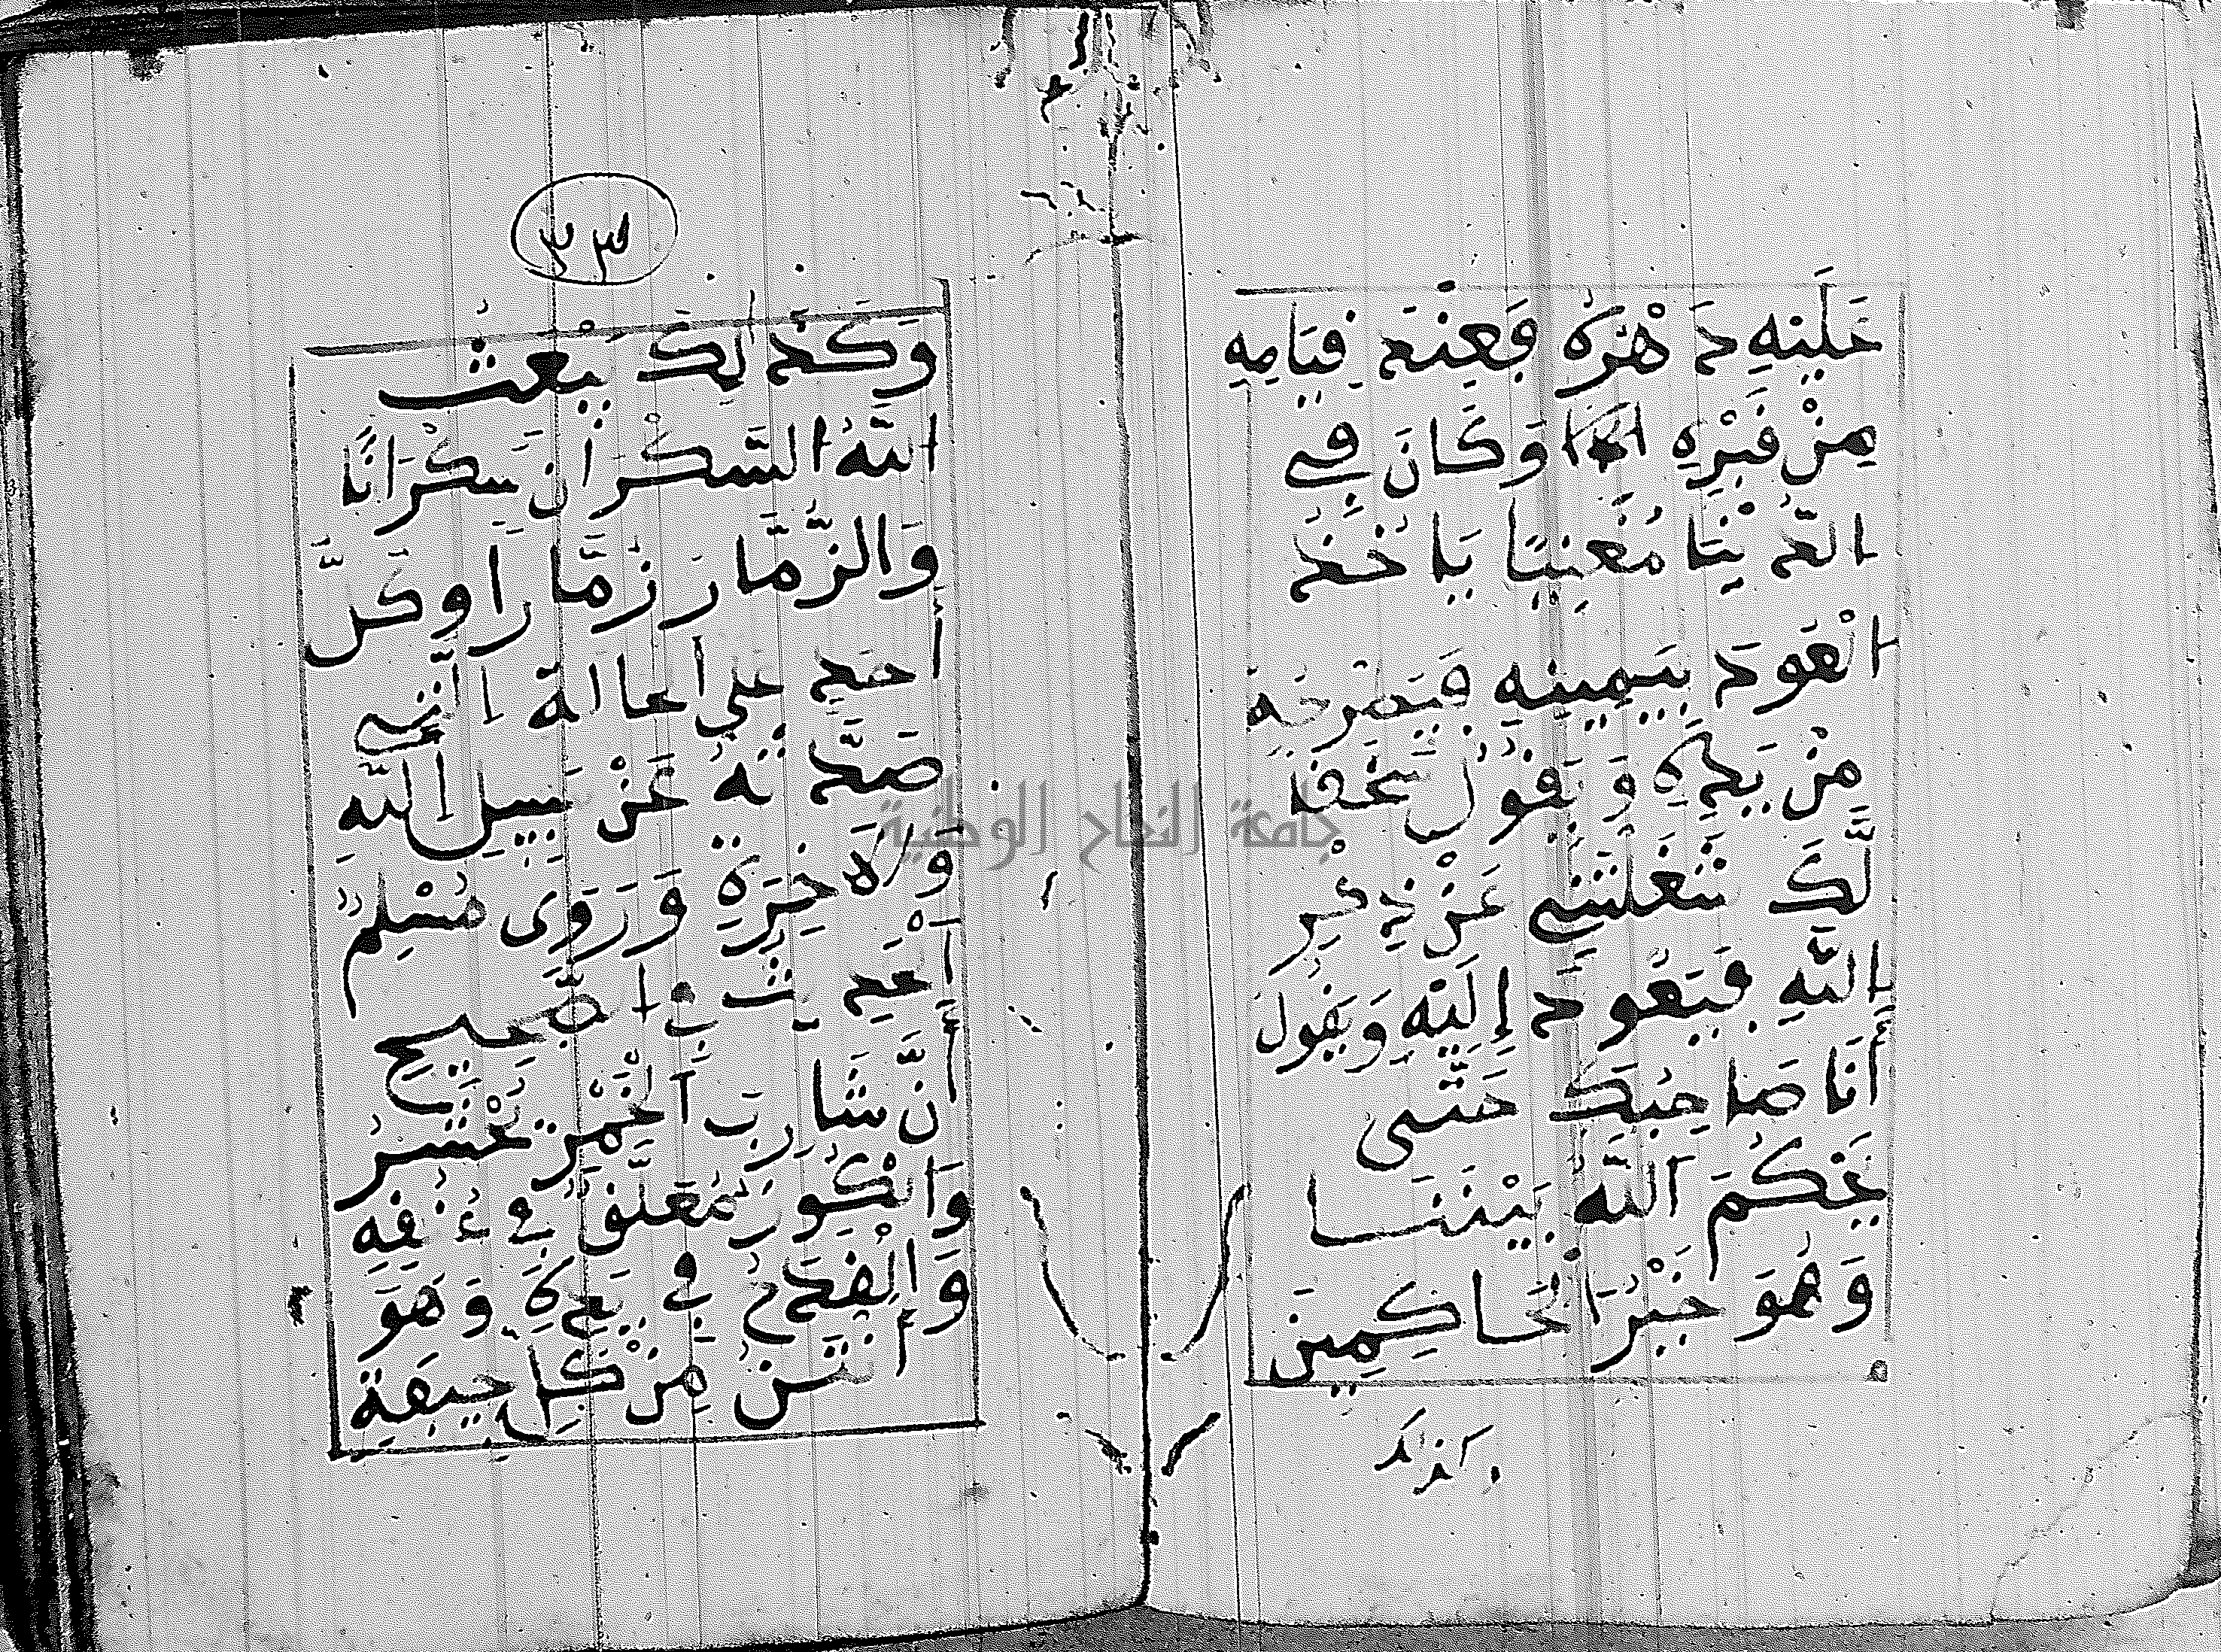 عَلَيْهِ دَهْرَهُ فَعِنْدَ قِيَامِهِ
مِنْ قَبْرِهِ إذا وَكَانَ فِي
الدُّنْيَا مُغَنِيًّا يَاخُذُ
الْعَودَ بِيَمِينِهِ فَيَطْرَحُهُ
مِنْ يَدِهِ وَيَقُولُ سُحْقًا
لَّكَ شَغَلْتَنِي عَنْ ذِكْرِ
اللَّهِ فَيَعُودُ إِلَيْهِ وَيَقُولُ
أَنَا صَاحِبُكَ حَتَّى
يَحْكُمَ اللَّهُ بَيْنَنَا
وَهُوَ خَيْرُ الْحَاكِمِينَ
وكذلك
٣٣
وَكَذَلِكَ يَبْعَثُ
اللَّهُ السَّكْرَانَ سَكْرَانًا
وَالزَّمَّارَ زَمَّارًا وَكُلَّ
أَحَدٍ عَلَى الحَالَةِ الَّتِي
صَدَّتْهُ عَنْ سَبِيلِ اللَّهِ
وَالآخِرَةِ وَرَوَى مُسْلِمٌ
الحَدِيثَ فِي الصَّحِيحِ
أَنَّ شَارِبَ الْخَمْرِ يُحْشَرُ
وَالْكُوزُ مُعَلَّقٌ فِي عُنُقِهِ
وَالْقَدَحُ فِي يَدِهِ وَهُوَ
أَنْتَنُ مِنْ كُلِّ جِيفَةٍ
جامعة النجاح الوطنية